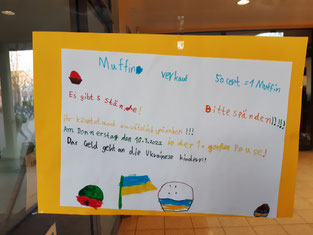 Muffin verkauf 50 cent = 1 Muffin
Es gibt 5 Stände!
Bitte spänden!!!!)
ihr könnt auch freiwillig spänden !!!
Am Donnerstag den 10.3.2022 in der 1. großen Pause!
Das Geld geht an die Ukrainise kinder!!